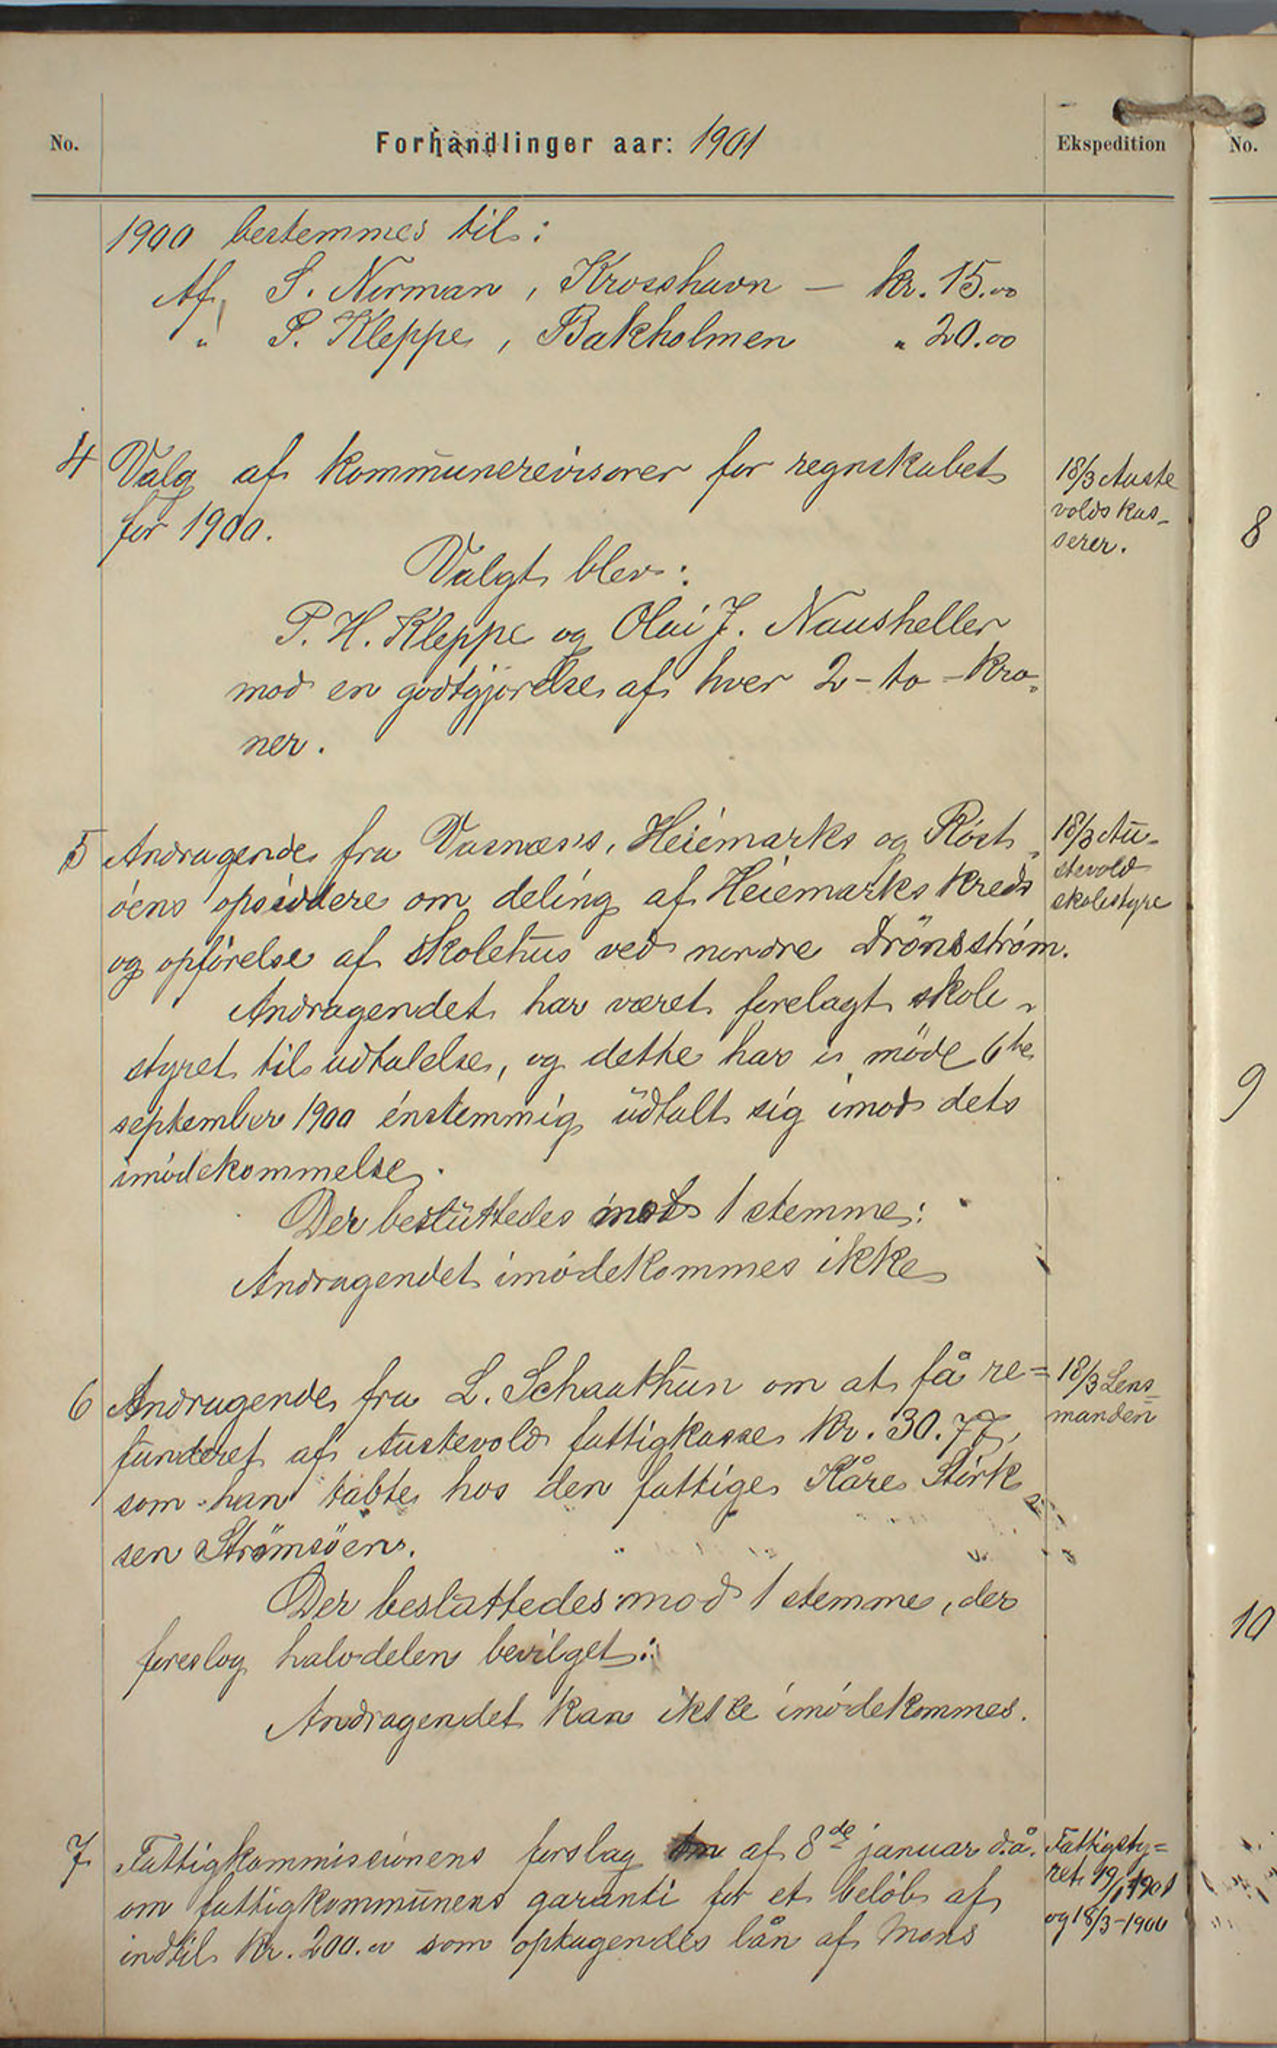 No.
Forhandlinger aar: 1901
Ekspedition
No.
1900 bestemmes til:
Af S. Nirman, Krosshavn — kr. 15.00
" P. Kleppe, Bakholmen " 20.00
4 Valg af kommunerevisorer for regnskabet
for 1900.
18/3 Auste
volds kas-
serer.
Valgt blev:
P. H. Kleppe og Olai J. Nausheller
mod en godtgjørelse af hver 2 - to - kro-
ner.
5 Andragende fra Vasnæs's, Heiemarks og Röst
öens opsiddere om deling af Heiemarks kreds
og opförelse af skolehus ved nordre Drönsström.
18/3 Au-
stevold
skolestyre
Andragendet har været forelagt skole-
styret til udtalelse, og dette har i möde 6te
september 1900 énstemmig udtalt sig imod dets
imödekommelse.
Der besluttedes mod 1 stemme:
Andragendet imödekommes ikke
6 Andragende fra L. Schaathun om at få re=
funderet af Austevold fattigkasse kr. 30.77,
som han tabte hos den fattige Kåre Störk
sen Strömsöen.
18/3 Lens
manden
Der besluttedes mod 1 stemme, der
foreslog halvdelen bevilget:
Andragendet kan ikke imödekommes.
7 Fattigkommissionens forslag af 8de januar d.å.
om fattigkommunens garanti for et belöb af
indtil kr. 200.00 som optagendes lån af Mons
Fattigsty=
ret 19/1 1901
og 18/3-1900
8
9
10